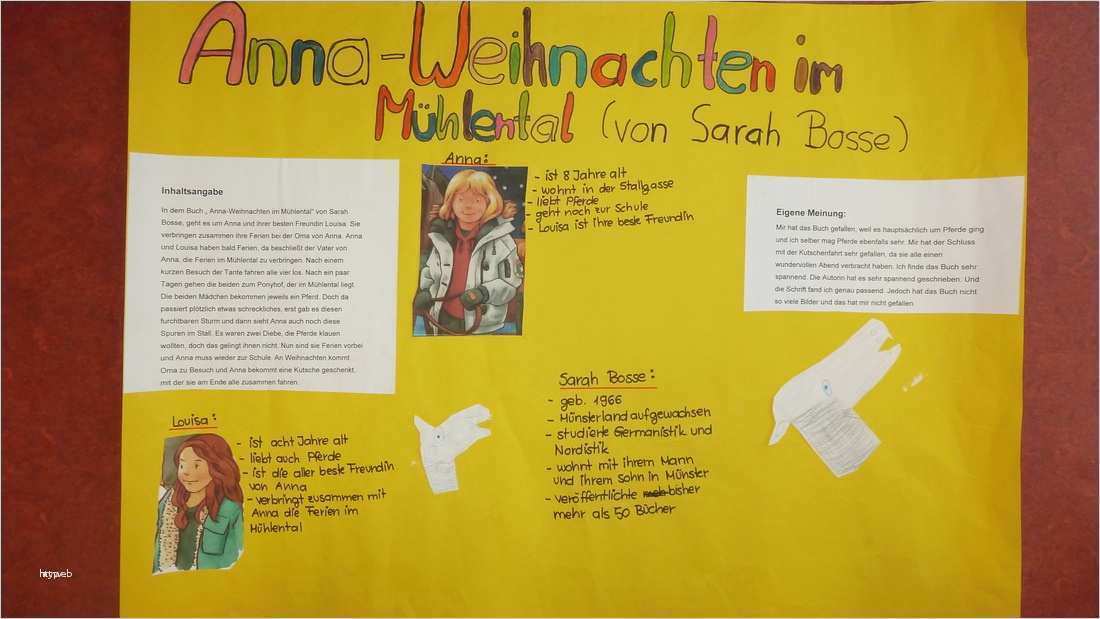 Anna-Weihnachten im
Mühlental (von Sarah Bosse)
Inhaltsangabe
In dem Buch „ Anna-Weihnachten im Mühlental" von Sarah
Bosse, geht es um Anna und ihrer besten Freundin Louisa. Sie
verbringen zusammen ihre Ferien bei der Oma von Anna. Anna
und Louisa haben bald Ferien, da beschließt der Vater von
Anna, die Ferien im Mühlental zu verbringen. Nach einem
kurzen Besuch der Tante fahren alle vier los. Nach ein paar
Tagen gehen die beiden zum Ponyhof, der im Mühlental liegt.
Die beiden Mädchen bekommen jeweils ein Pferd. Doch da
passiert plötzlich etwas schreckliches, erst gab es diesen
furchtbaren Sturm und dann sieht Anna auch noch diese
Spuren im Stall. Es waren zwei Diebe, die Pferde klauen
wollten, doch das gelingt ihnen nicht. Nun sind sie Ferien vorbei
und Anna muss wieder zur Schule. An Weihnachten kommt
Oma zu Besuch und Anna bekommt eine Kutsche geschenkt,
mit der sie am Ende alle zusammen fahren.
Anna:
- ist 8 Jahre alt
- wohnt in der Stallgasse
- liebt Pferde
- geht noch zur Schule
- Louisa ist ihre beste Freundin
Eigene Meinung:
Mir hat das Buch gefallen, weil es hauptsächlich um Pferde ging
und ich selber mag Pferde ebenfalls sehr. Mir hat der Schluss
mit der Kutschenfahrt sehr gefallen, da sie alle einen
wundervollen Abend verbracht haben. Ich finde das Buch sehr
spannend. Die Autorin hat es sehr spannend geschrieben. Und
die Schrift fand ich genau passend. Jedoch hat das Buch nicht
so viele Bilder und das hat mir nicht gefallen
Louisa:
- ist acht Jahre alt
- liebt auch Pferde
- ist die aller beste Freundin
von Anna
- verbringt zusammen mit
Anna die Ferien im
Mühlental
Sarah Bosse:
- geb. 1966
- Münsterland aufgewachsen
- studierte Germanistik und
Nordistik
- wohnt mit ihrem Mann
und ihrem Sohn in Münster
- veröffentlichte bisher
mehr als 50 Bücher